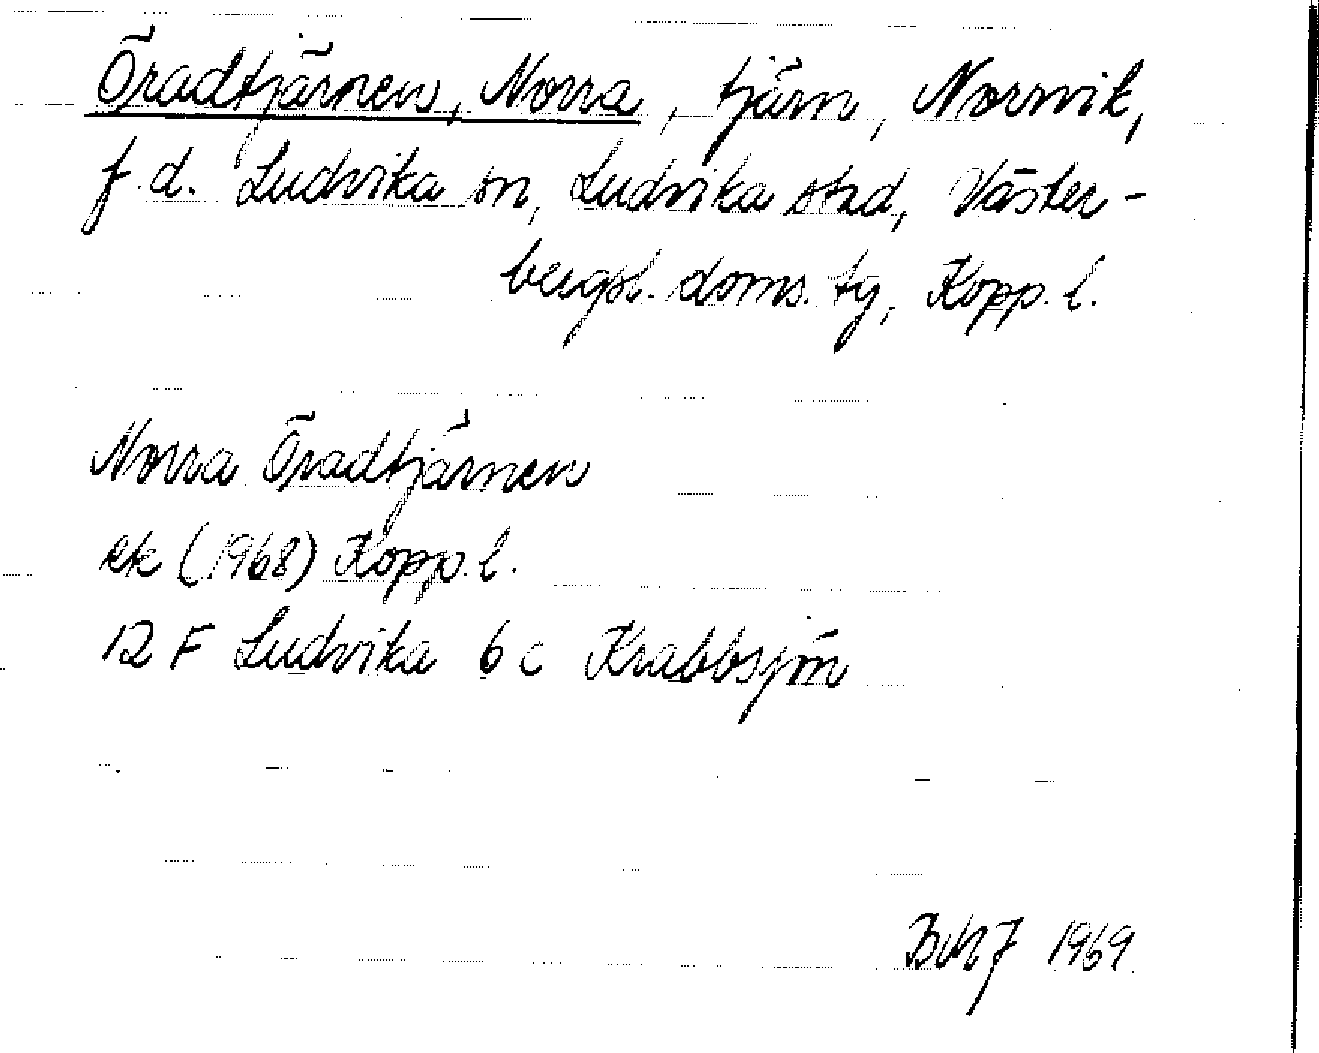 Öradtjärnen, Norra, tjärn, Norrvik,
f.d. Ludvika sn, Ludvika stad, Väster-
bergsl. doms. tg, Kopp. l.
Norra Öradtjärnen
ek (1968) Kopp. l.
12 F Ludvika 6 c Krabbsjön
1969